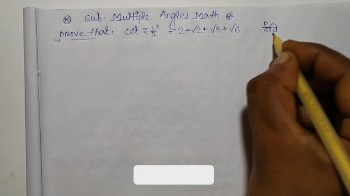 Ⓧ Sub-Multiple Angles Math
prove that: cot 7½° = 2+√2+√3+√6